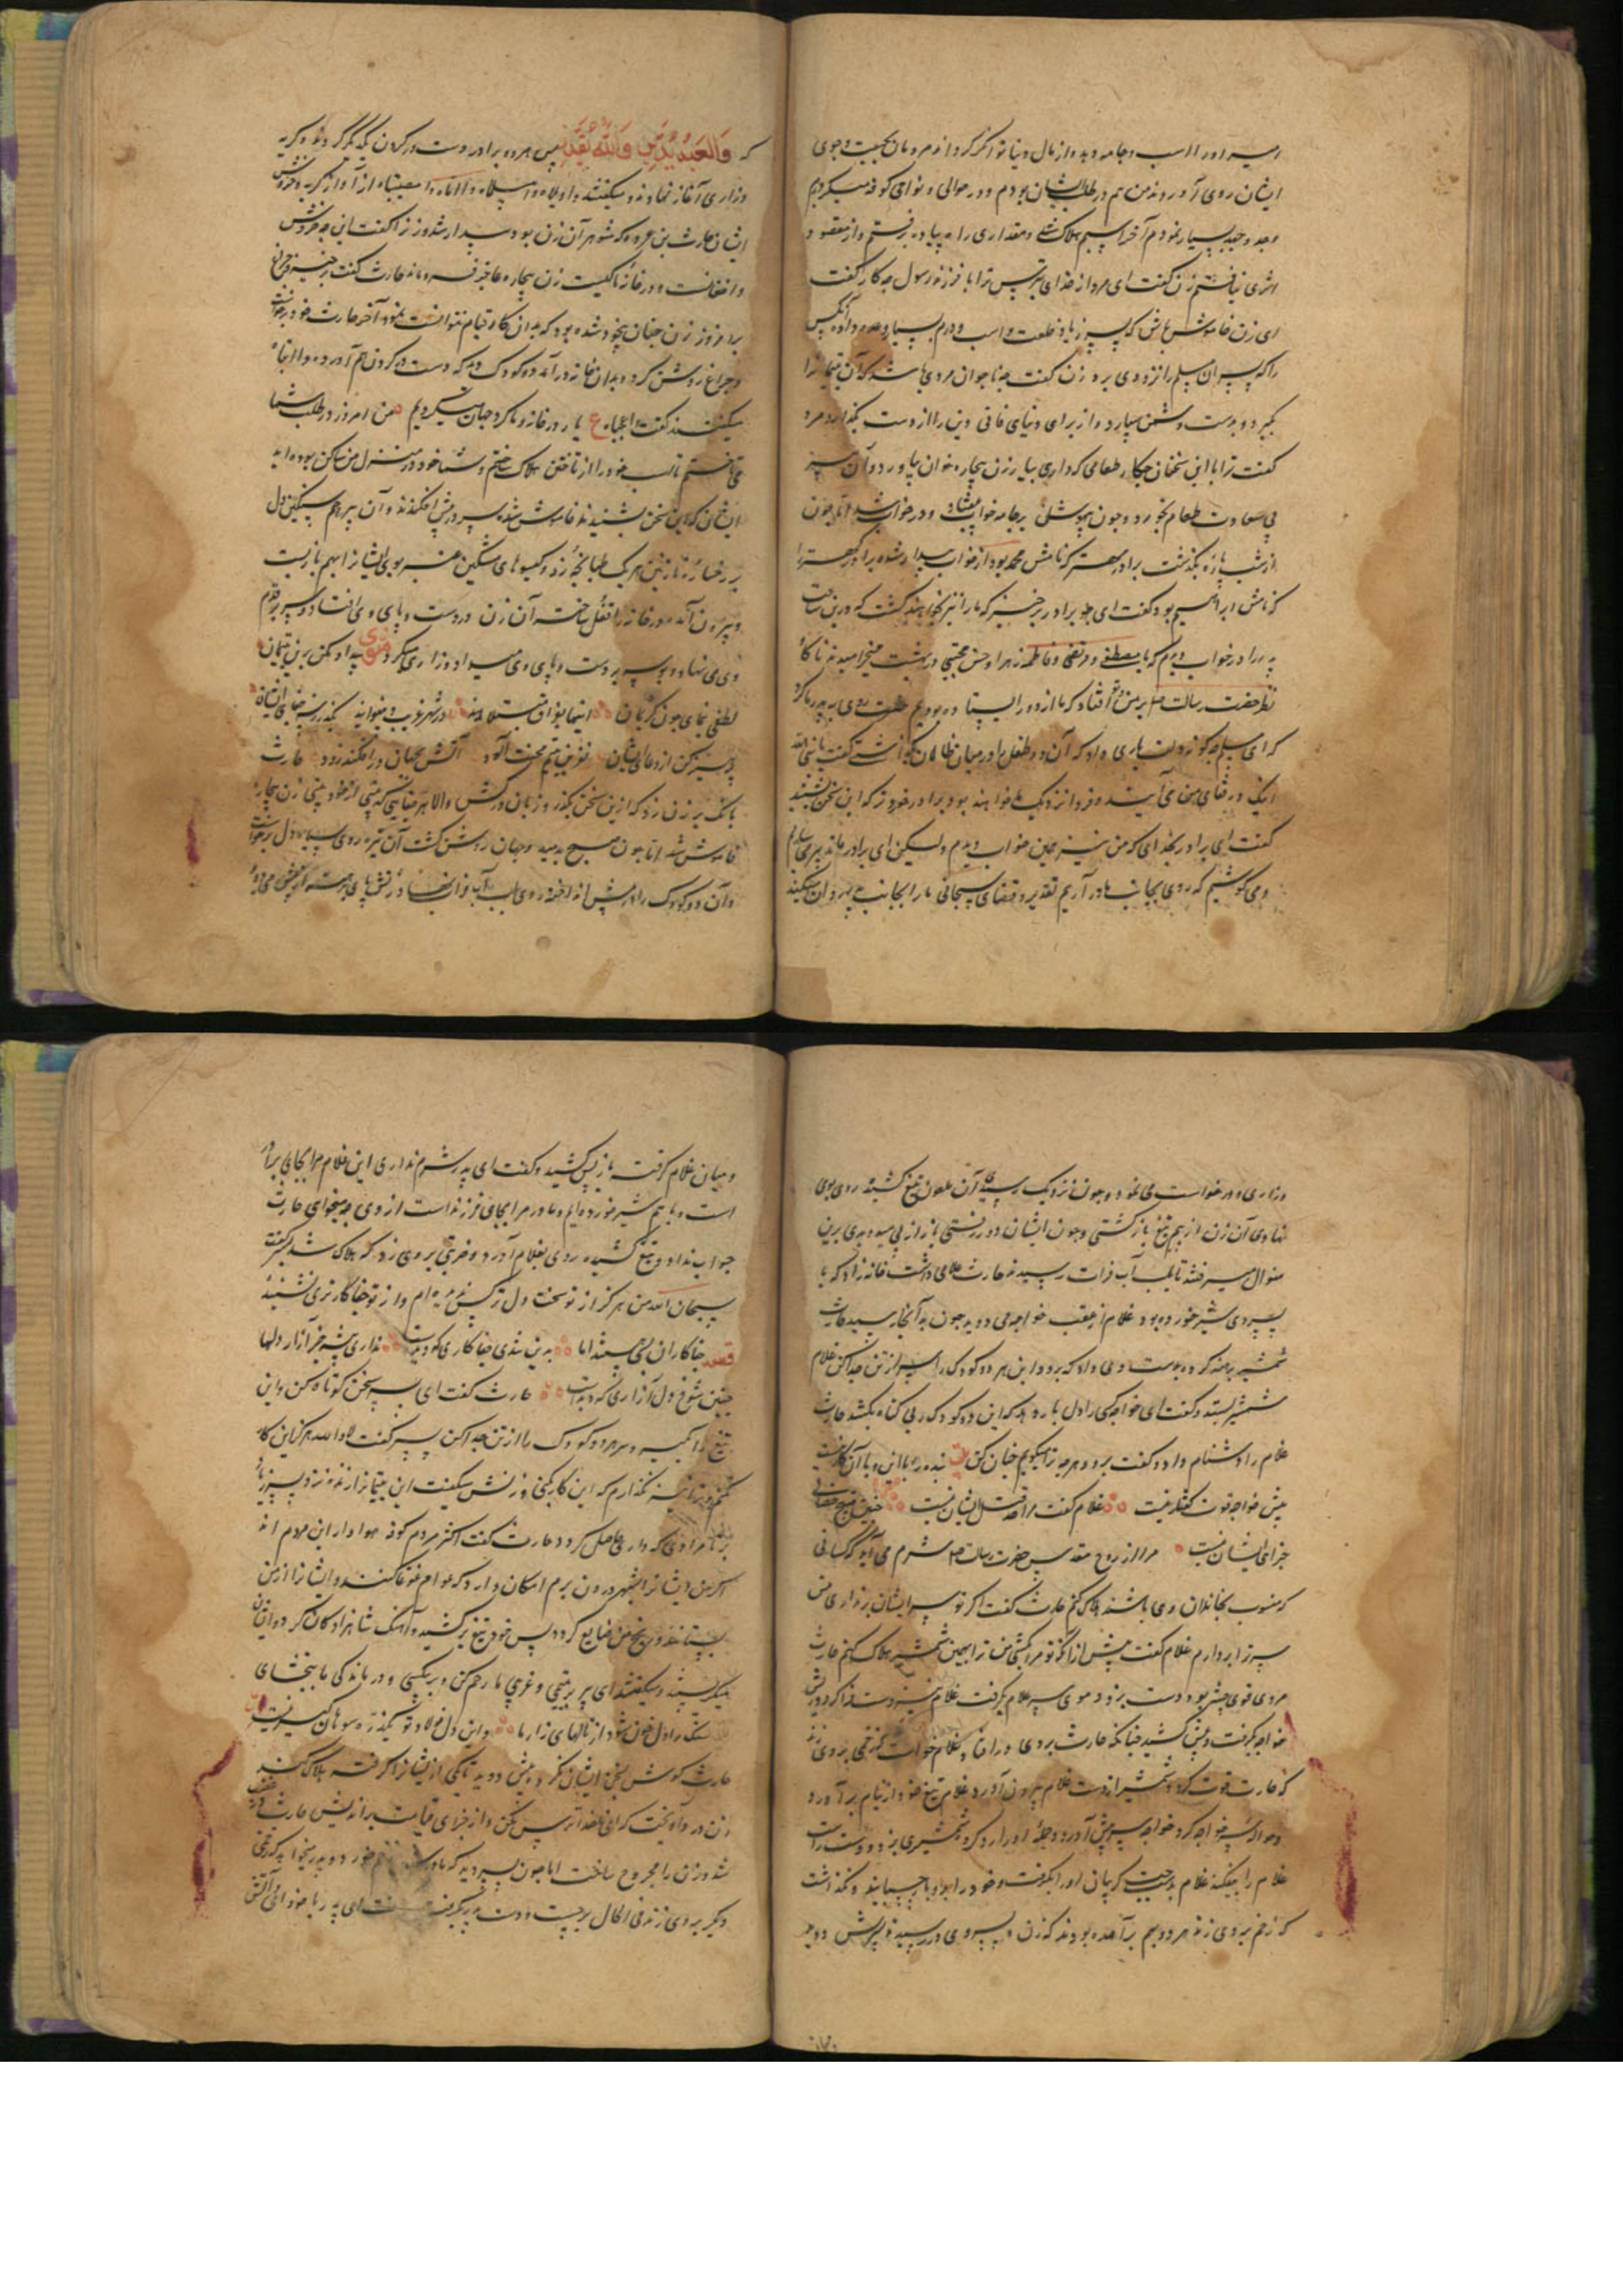 امیر او را اسب و جامه دهد و از مال دنیا توانگر گرداند مردمان بجست و جوی
ایشان روی آوردند من هم در طلب ایشان بودم و در حوالی و نواحی کوفه میگردیدم
و جد و جهد بسیار نمودم آخر اسبم هلاک شد و مقداری راه پیاده برفتم و از مقصود
اثری نیافتم زن گفت ای مرد از خدای بترس ترا با فرزند رسول چه کار گفت
ای زن خاموش باش که پسر زیاد خلعت و اسب و درم بسیار وعده داده آنکس
را که پسران مسلم را نزد وی برد زن گفت چه ناجوان مردی باشد که آن یتیمانرا
بگیرد و بدست دشمن سپارد و از برای دنیای فانی دین را از دست بگذارد مرد
گفت ترا با این سخنان چکار طعامی که داری بیار زن بیچاره خوان بیاورد و آن
بی سعادت طعام بخورد و چون بیهوشان بر جامه خواب بیفتاد و در خواب شد اما چون
از شب پاره بگذشت برادر مهتر که نامش محمد بود از خواب بیدار شد و برادر کهتر را
که نامش ابراهیم بود گفت ای برادر برخیز که ما را نیز بخواهند کشت که درین ساعت
پدر را در خواب دیدم که با مصطفی و مرتضی و فاطمه زهرا و حسن مجتبی در بهشت میخرامیدند ناگاه
نظر حضرت رسالت بر من و تو افتاد که ما از دور ایستاده بودیم حضرت روی به پدر ما کرد
که ای مسلم چگونه دلت یاری داد که آن دو طفل را در میان ظالمان بگذاشتی گفت یا نبی الله
اینک در قفای من می آیند و فردا نزدیک ما خواهند بود برادر خورد که این سخن بشنید
گفت ای برادر بخدای که من نیز همین خواب دیدم ولیکن ای برادر
و می کوشیم که روی بجانب مادر آریم تقدیر و قضای سبحانی ما را بجانب پدر
که وَالعَبدُ یُدَبِّرُ وَاللّٰهُ یُقَدِّرُ پس هر دو برادر دست در گردن یکدیگر کردند و گریه
و زاری آغاز نهادند و میگفتند واویلاه وامسلماه وا مصیبتاه از آواز گریه و خروش
ایشان حارث بن عروه که شوهر آن زن بود بیدار شد و زن را گفت این چه خروش
و افغانست و در خانه ما کیست زن بیچاره عاجز فرو ماند حارث گفت برخیز و چراغ
برافروز زن چنان بیخود شده بود که بدان کار قیام نتوانست نمود آخر حارث خود برخاست
و چراغ روشن کرد و بدان خانه درآمد دو کودک دید که دست در گردن هم آورده وا ابتاه
میگفتند گفت واعجباه ع یار در خانه و ما گرد جهان میگردیم من امروز در طلب شما
می تاختم تا اسب خود را از تاختن هلاک ساختم و شما خود در منزل من ساکن بوده اید
ایشان که این سخن بشنیدند خاموش شدند سر در پیش افکندند و آن بیرحم سنگین دل
بر رخساره نازنین هر یک طپانچه زد و گیسوهای مشکین عنبر بوی ایشانرا بهم باز بست
و بیرون آمد و در خانه را قفل ساخت آن زن در دست و پای وی افتاد و سر بر قدم
وی می نهاد و بوسه بر دست و پای وی میداد و زاری میکرد مثنوی بیداد مکن برین یتیمان
لطفی نمای چون کریمان اینها بفراق مبتلااند در شهر غریب و بینوایند بگذر ز سر جفای ایشان
پرهیز کن از دعای ایشان نفرین یتیم محنت آلود آتش بجهان درافکند زود حارث
بانگ بر زن زد که ازین سخن بگذر و زبان در کش والا هر جفایی که بینی از خود بینی زن بیچاره
خاموش شد اما چون صبح بدمید و جهان روشن گشت آن تیره روی سیاه دل برخواست
و آن دو کودک را در پیش انداخته روی بلب آب فرات نهاد زنش پای برهنه از پیش میدوید
و زاری و درخواست می نمود و چون نزدیک رسید آن ملعون تیغ کشیده روی بوی
نهادی آن زن از بیم تیغ بازگشتی و چون ایشان دور رفتندی باز از پی میدویدی برین
منوال میرفتند تا بلب آب فرات رسیدند حارث غلامی داشت خانه زاد که با
پسر وی شیر خورده بود غلام از عقب خواجه می دوید چون به آنجا رسید حارث
شمشیر برهنه کرده بدست وی داد که برو و این هر دو کودک را سر از تن جدا کن غلام
شمشیر بستد و گفت ای خواجه کسی را دل بار دهد که این دو کودک بی گناه بکشد حارث
غلام را دشنام داد و گفت برو و هر چه ترا میگویم چنان کن بنده را با این و با آن کار نیست
پیش خواجه قوت گفتار نیست غلام گفت مرا قتل ایشان نیست
جزای ایشان نیست مرا از روح مقدس حضرت رسالت شرم می آید که کسانی
که منسوب بخاندان وی باشند هلاک کنم حارث گفت اگر تو سر ایشان برنداری من
سر ترا بردارم غلام گفت پیش از آنکه تو مرا بکشی من ترا بهمین شمشیر هلاک کنم حارث
مردی قوی جثه بود دست بزد و موی سر غلام بگرفت غلام نیز دست دراز کرد و ریش
خواجه بگرفت و پیش کشید چنانکه حارث بروی درافتاد و غلام خواست که زخمی بر وی زند
که حارث قوت کرد و شمشیر از دست غلام بیرون آورد غلام تیغ خود از نیام برآورد
و حواله خواجه کرد خواجه سپر پیش آورد و حمله او را رد کرد و شمشیری بزد و دست راست
غلام را بیفکند غلام بدست چپ گریبان او را بگرفت و خود را با او بچسپانید و نگذاشت
که زخم بر وی زند هر دو بهم برآمده بودند که زن و پسر وی در رسیدند پسرش دوید
و میان غلام گرفت باز پس کشید و گفت ای پدر شرم نداری این غلام مرا بجای برادر
است و با هم شیر خورده ایم و مادر مرا بجای فرزند است از وی چه میخواهی حارث
جواب نداد و تیغ کشیده روی بغلام آورد و ضربتی بر وی زد که هلاک شد پسر گفت
سبحان الله من هرگز از تو سخت دل تر کس ندیده ام و از تو جفاکارتری نشنیده
قصد جفاکاران بسی باشند اما بدین تندی جفاکاری که دیدست نداری پیشه جز آزار دلها
چنین شوخ دل آزاری که دیدست حارث گفت ای پسر سخن کوتاه کن و این
تیغ را بگیر و سر هر دو کودک را از تن جدا کن پسر گفت لا والله هرگز این کار
نکنم و ترا نیز نگذارم که این کار بکنی و زنش میگفت این یتیمانرا زنده نزد پسر زیاد
بر تا مرادی که داری حاصل گردد حارث گفت اکثر مردم کوفه هوادار این مردم اند
اگر من ایشانرا بشهر درون برم امکان دارد که عوام غوغا کنند و ایشانرا از من
بستانند و رنج من ضایع گردد پس خود تیغ برکشید و آهنگ شاهزادگان کرد و ایشان
میگریستند و میگفتند ای پیر بر یتیمی و غریبی ما رحم کن و بر بیکسی و درماندگی ما ببخشای
سنگ را دل خون شود از نالهای زار ما وین دل فولاد تو یک ذره سوهان گیر نیست
حارث گوش بسخن ایشان نکرد و پیش دوید تا یکی از ایشانرا گرفته هلاک کند
زن در وی آویخت که ای ظالم از خدا بترس و مکن و از جزای قیامت براندیش حارث در غضب
شد و زن را مجروح ساخت اما چون پسر دید که مادر زخم خورد و پدر میخواهد که زخمی
دیگر بر وی زند فی الحال برجست و دست پدر بگرفت گفت ای پدر با خود آی و آتش